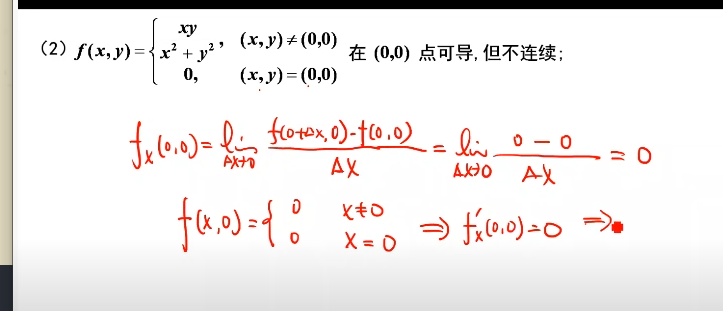 (2) f(x,y)={ xy/(x²+y²), (x,y)≠(0,0)
0, (x,y)=(0,0) 在 (0,0) 点可导,但不连续;
fx(0,0)=lim Δx→0 (f(0+Δx,0)-f(0,0))/Δx = lim Δx→0 (0-0)/Δx = 0
f(x,0)={ 0 x≠0
0 x=0 ⇒ f'x(0,0)=0 ⇒